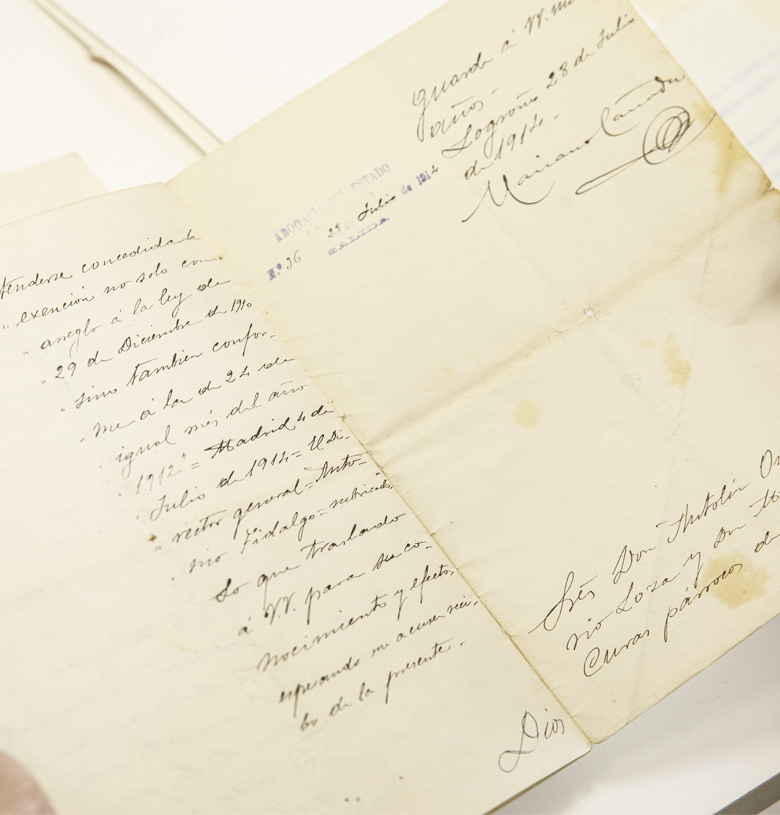 tenderse concedida la
" exención no solo con
" arreglo á la ley de
" 29 de Diciembre de 1910
" sino tambien confor-
" me á la de 24 de
" igual més del año
" 1912" = Madrid 4 de
" Julio de 1914 = El Di-
" rector general = Anto-
" nio Fidalgo = rubricado
Lo que traslado
á VV. para su co-
nocimiento y efectos,
esperando me acusen reci-
bo de la presente.
Dios
guarde á VV. mu
años.
Logroño 28 de Julio
de 1914.
Mariano
ABOGACÍA DEL ESTADO
28 Julio de 1914
SALIDA
Nº 36
Srés Don Antolín
rio Loza y Don
Curas párrocos de